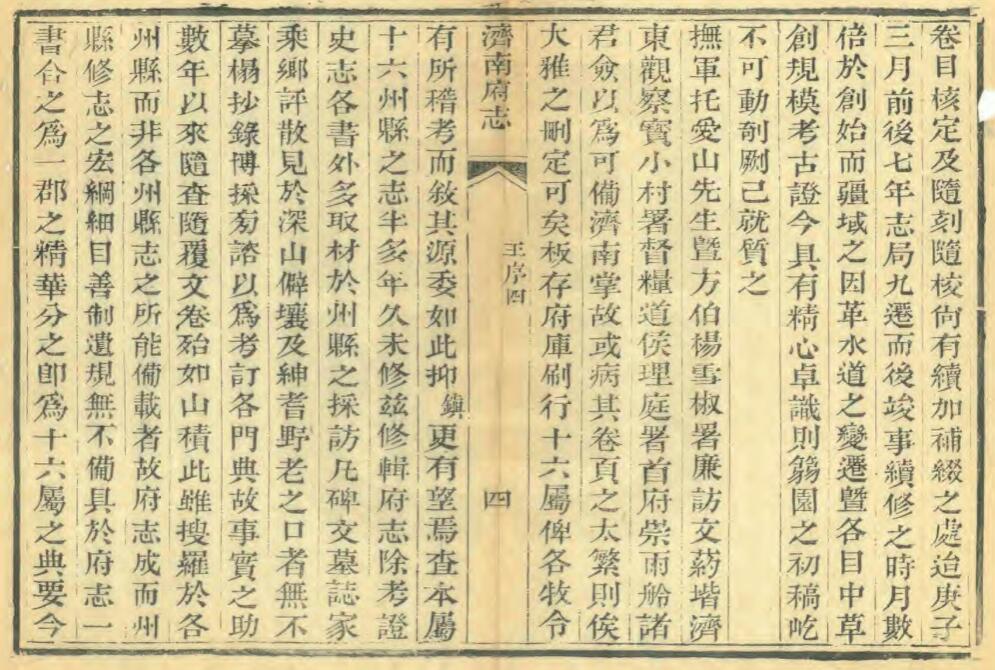 卷目核定及隨刻隨校尙有續加補綴之處迨庚子
三月前後七年志局九遷而後竣事續修之時月數
倍於創始而疆域之因革水道之變遷曁各目中草
創規模考古證今具有精心卓識則篛園之初稿屹
不可動剞劂已就質之
撫軍托愛山先生曁方伯楊雪椒署廉訪文葯堦濟
東觀察寶小村署督糧道侯理庭署首府崇雨舲諸
君僉以爲可備濟南掌故或病其卷頁之太繁則俟
大雅之刪定可矣板存府庫刷行十六屬俾各牧令
濟南府志
王序四
四
有所稽考而敘其源委如此抑鎭更有望焉查本屬
十六州縣之志半多年久未修茲修輯府志除考證
史志各書外多取材於州縣之採訪凡碑文墓誌家
乘鄉評散見於深山僻壤及紳耆野老之口者無不
摹榻抄錄博採旁諮以爲考訂各門典故事實之助
數年以來隨查隨覆文卷殆如山積此雖搜羅於各
州縣而非各州縣志之所能備載者故府志成而州
縣修志之宏綱細目善制遺規無不備具於府志一
書合之爲一郡之精華分之卽爲十六屬之典要今